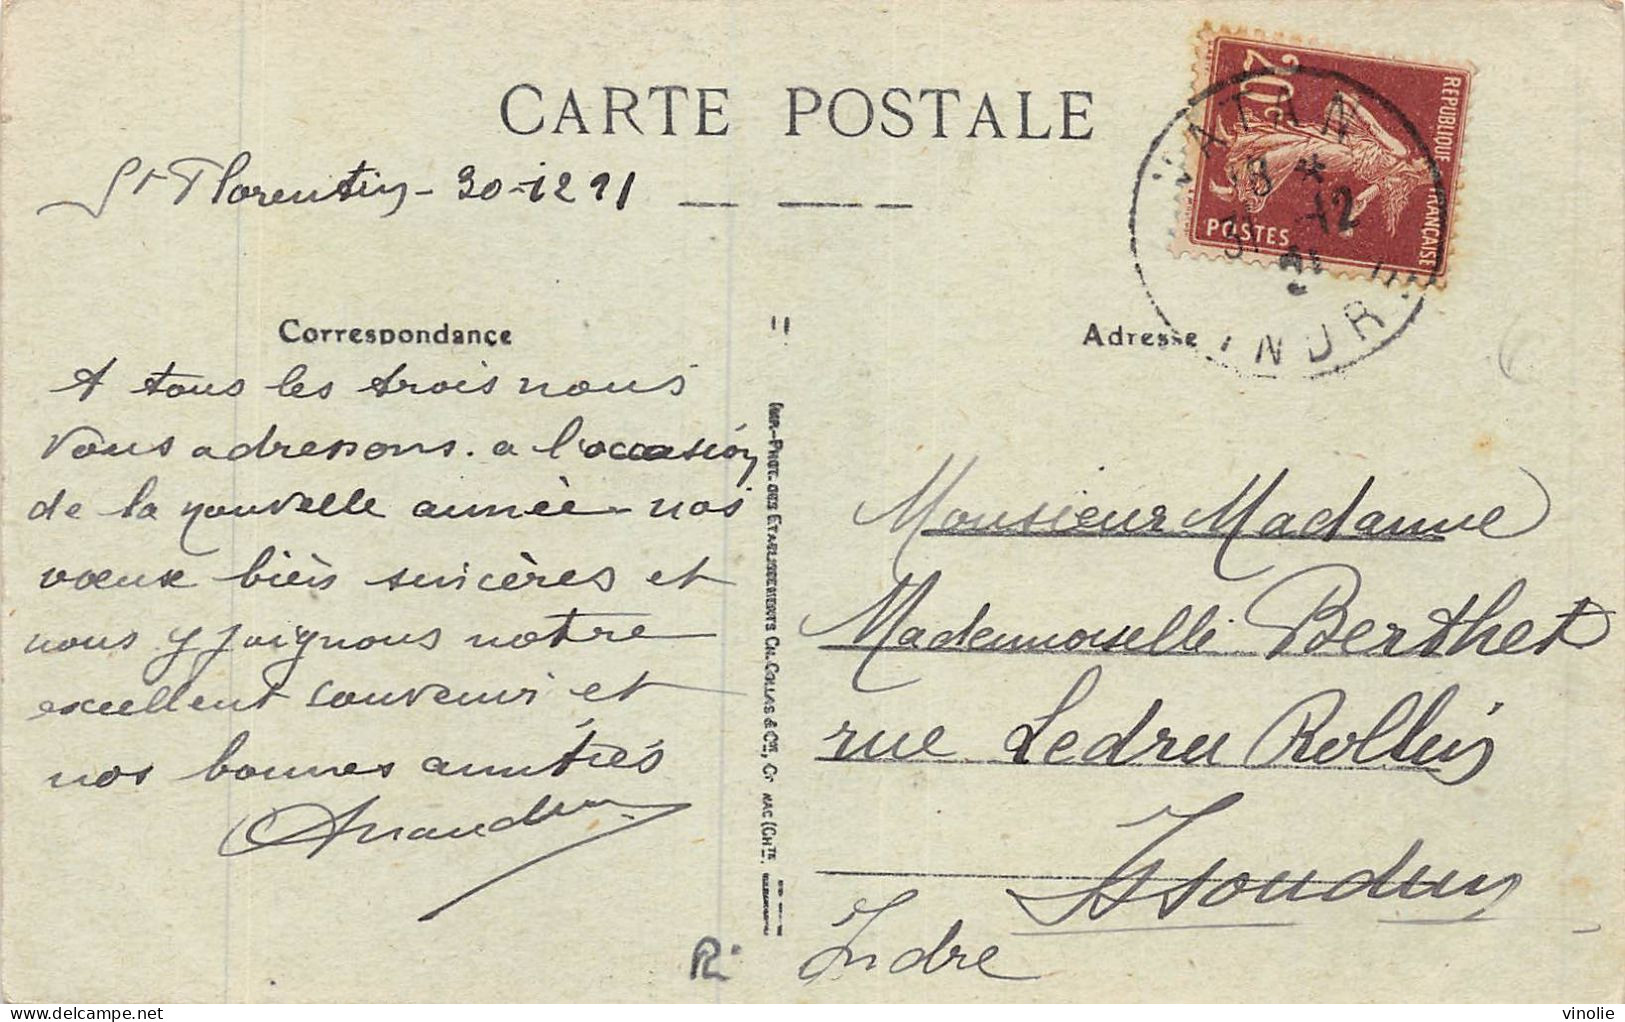 CARTE POSTALE
St Florentin - 30-12 21
VATAN
18 *
31 -12
INDRE
20
REPUBLIQUE FRANÇAISE
POSTES
Correspondance
A tous les trois nous
vous adressons. a l'occasion
de la nouvelle année - nos
vœux bien sincères et
nous y joignons notre
excellent souvenir et
nos bonnes amitiés
Adresse
Monsieur Madame
Mademoiselle Berthet
rue Ledru Rollin
Issoudun
Indre
IMP.-PHOT. DES ETABLISSEMENTS CH. COLLAS & Cie, COGNAC (CHTE
R.
vinolie